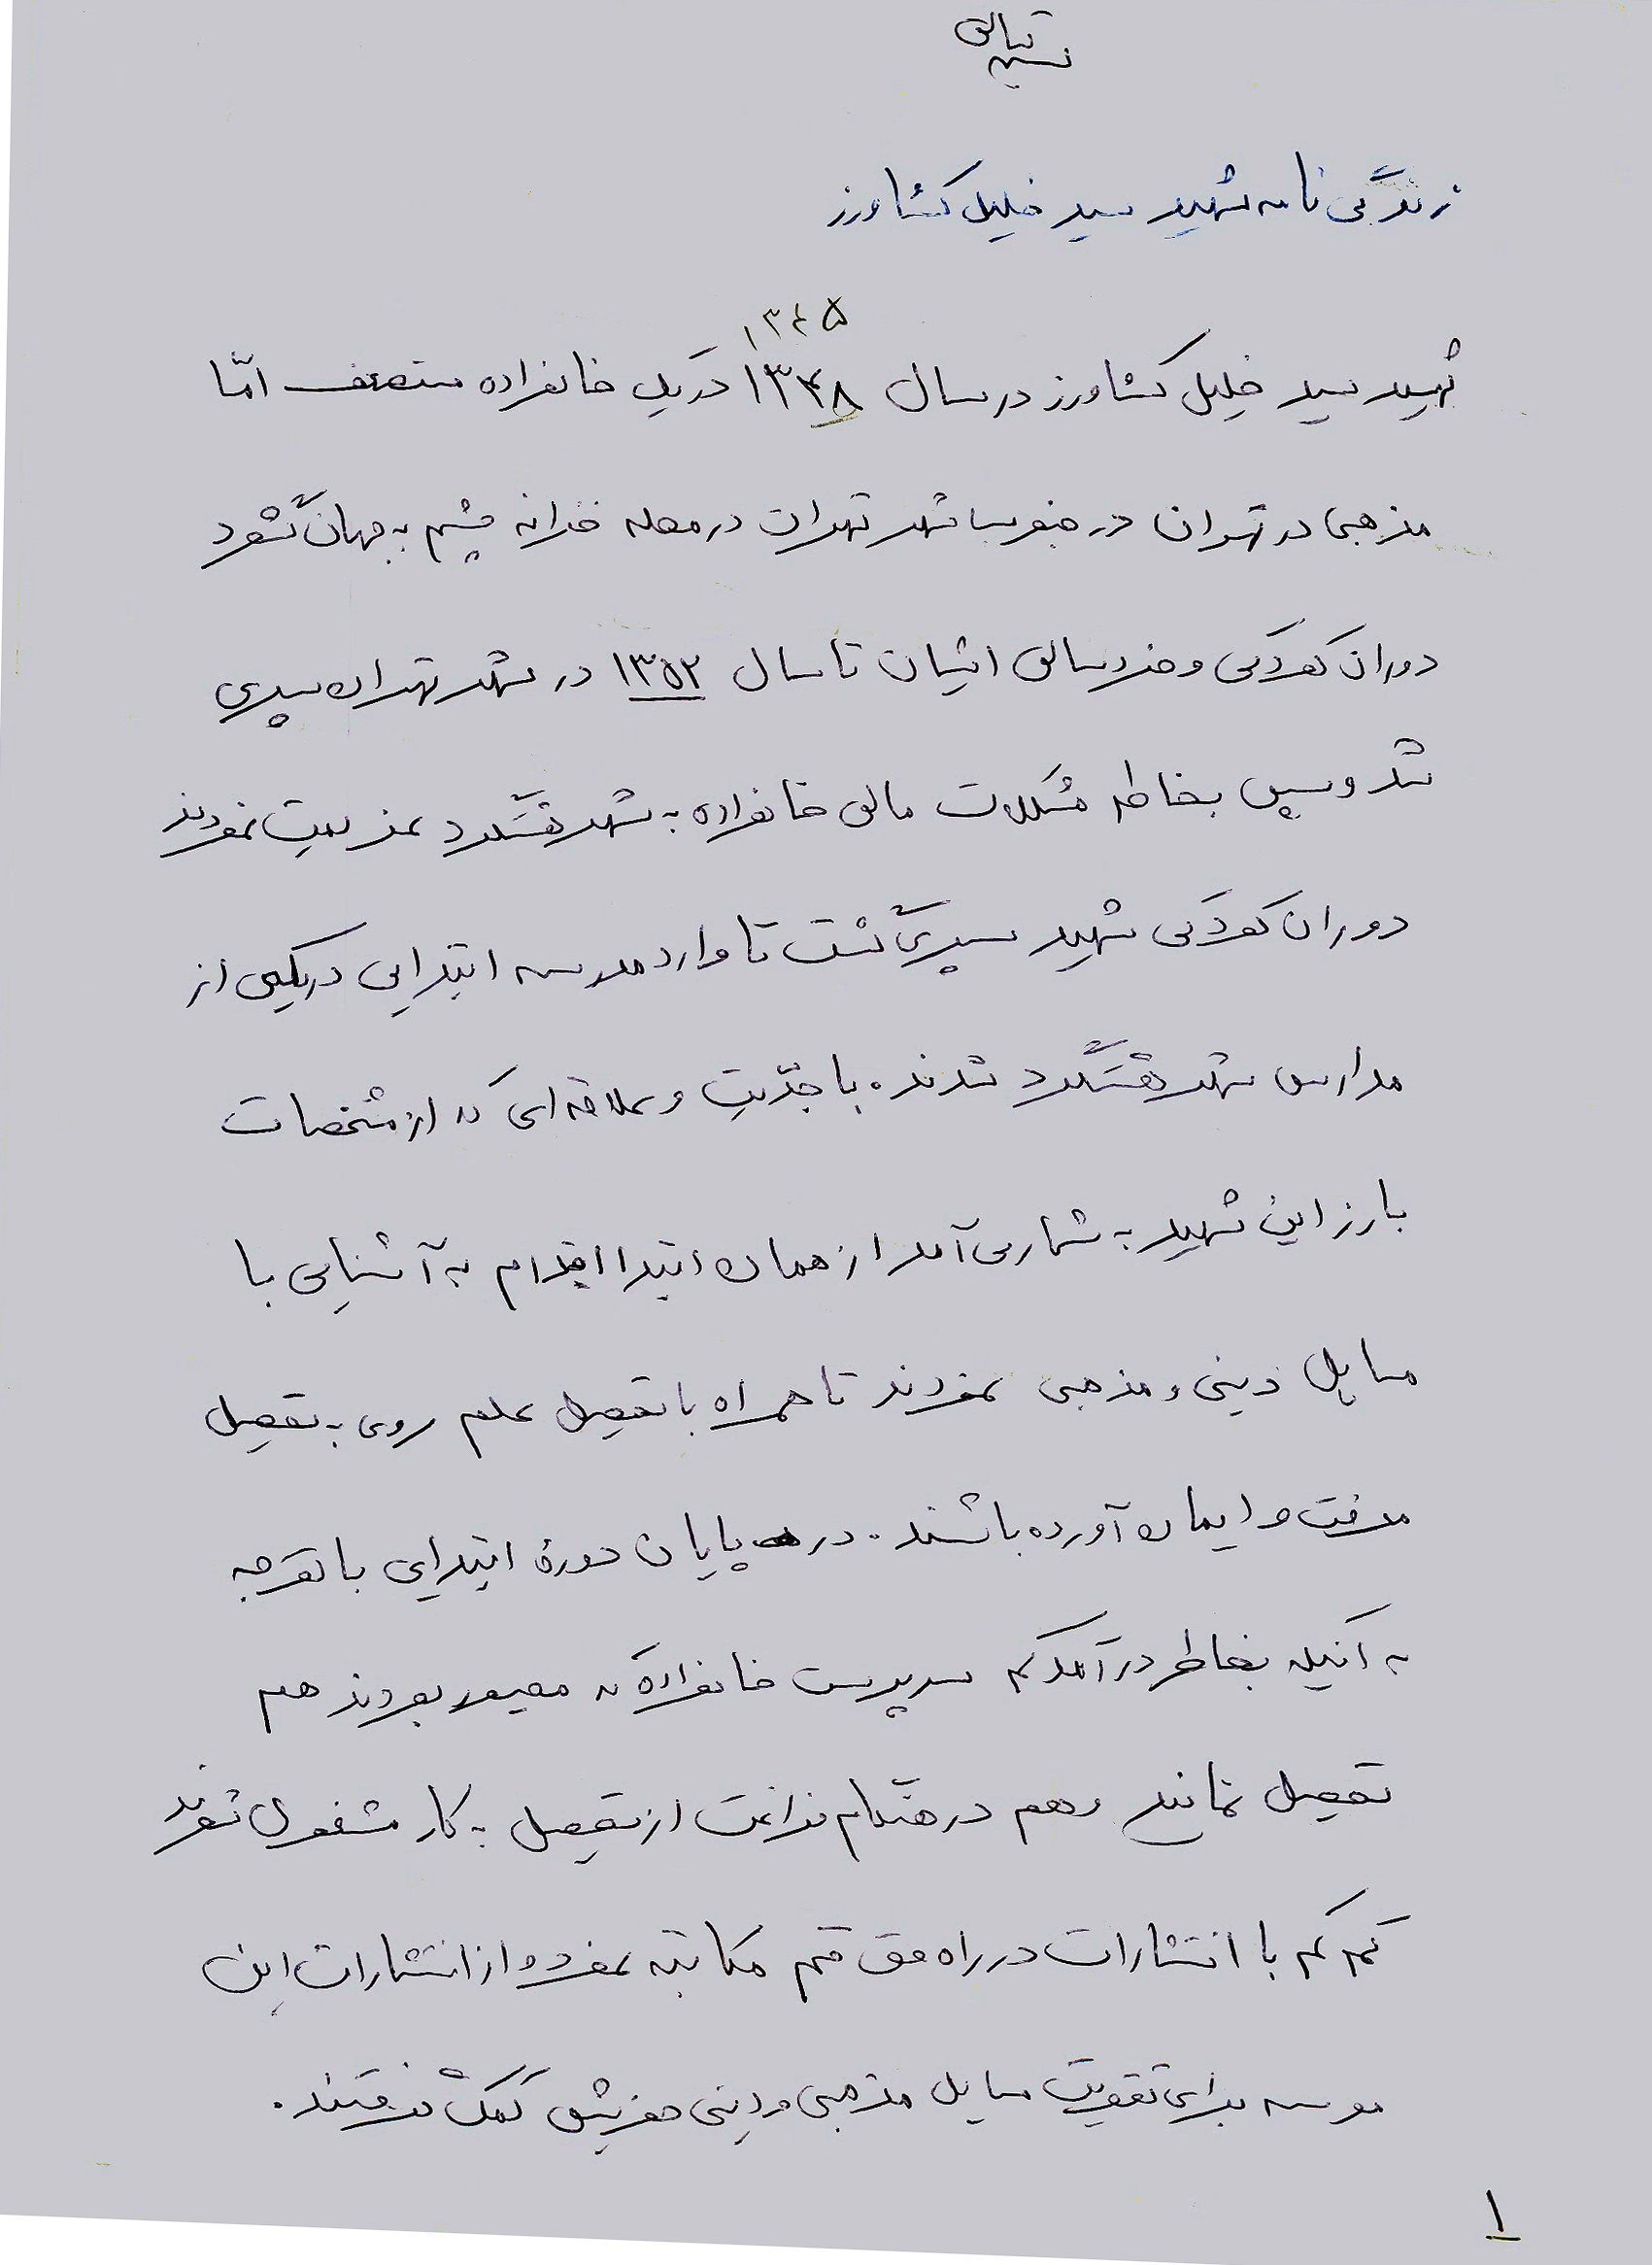 بسمه تعالی
زندگی نامه شهید سید خلیل کشاورز
۱۳۴۵
شهید سید خلیل کشاورز در سال ۱۳۴۸ در یک خانواده مستضعف امّا
مذهبی در تهران در جنوب شهر تهران در محله خزانه چشم به جهان گشود
دوران کودکی و خردسالی ایشان تا سال ۱۳۵۲ در شهر تهران سپری
شد و سپس بخاطر مشکلات مالی خانواده به شهر هشتگرد عزیمت نمودند
دوران کودکی شهید سپری گشت تا وارد مدرسه ابتدایی در یکی از
مدارس شهر هشتگرد شدند. با جدّیت و علاقه ای که از مشخصات
بارز این شهید به شمار می آمد از همان ابتدا اقدام به آشنایی با
مسایل دینی و مذهبی نمودند تا همراه با تحصیل علم روی به تحصیل
معرفت و ایمان آورده باشند. در پایان دورهٔ ابتدایی با توجه
به آنکه بخاطر درآمد کم سرپرست خانواده که مجبور بودند هم
تحصیل نمایند و هم در هنگام فراغت از تحصیل به کار مشغول شوند
کم کم با انتشارات در راه حق قم مکاتبه نمود و از انتشارات این
موسسه برای تقویت مسایل مذهبی و دینی خویش کمک گرفتند.
۱